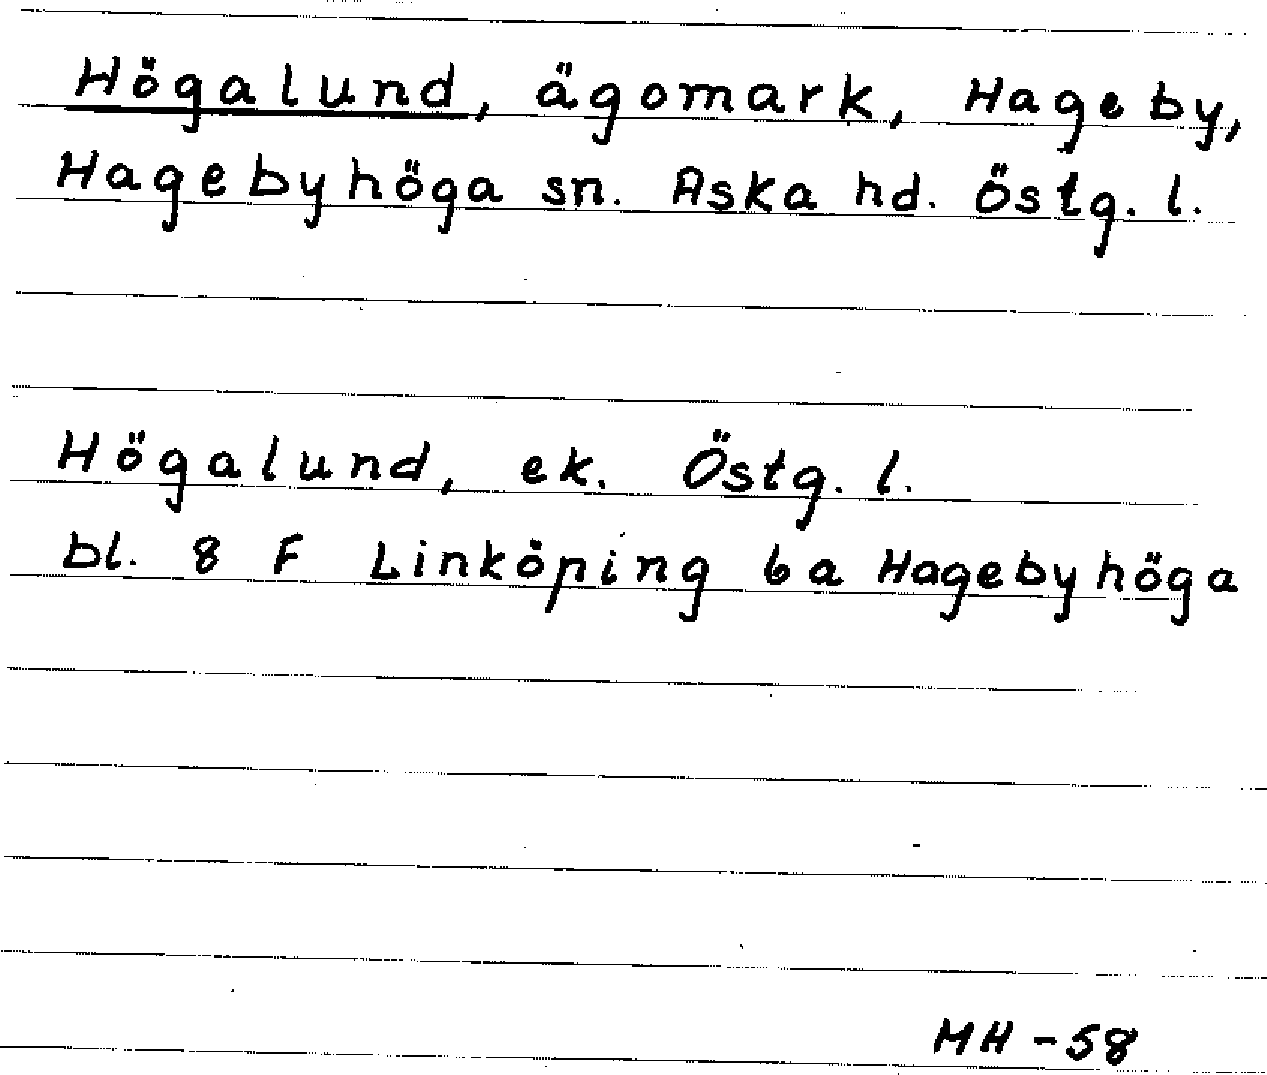 Högalund, ägomark, Hageby,
Hagebyhöga sn. Aska hd. Östg. l.
Högalund, ek. Östg. l.
bl. 8 F Linköping 6a Hagebyhöga
MH - 58